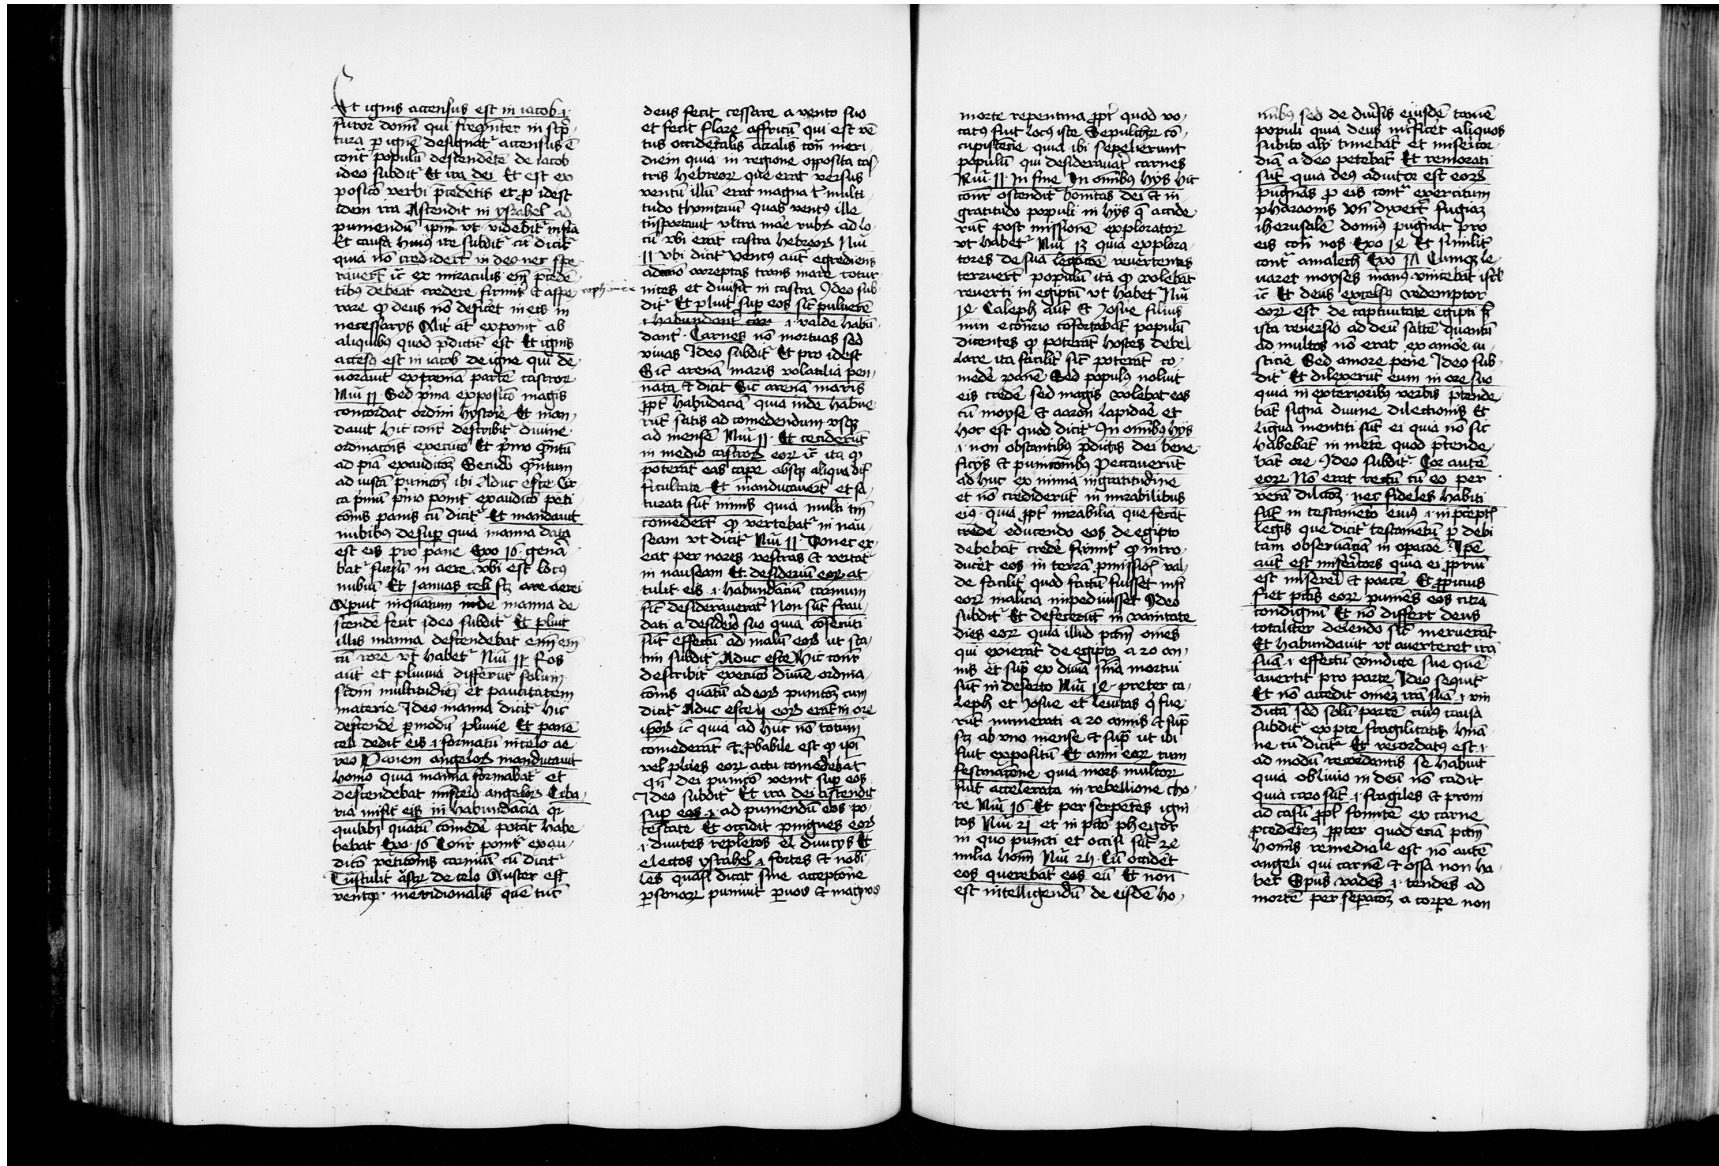 Et ignis accensus est in iacob .i.
furor domini qui frequenter in scrip
tura per ignem designatur accensus est
contra populum descendentem de iacob
ideo subditur Et ira dei Et est ex
positio verbi precedentis et pro idest
idem ira Ascendit in ysrahel ad
puniendum ipsum ut videbitur infra
Et causa huius ire subditur cum dicitur
quia non crediderunt in deo nec spe
raverunt
tibus debebant credere firmiter et
rare quod deus non deficeret in eis in
necessariis Aliter autem exponitur ab
aliquibus quod predictum est Et ignis
accensus est in iacob de igne qui de
voravit extremam partem castrorum
Num 11 Sed prima expositio magis
concordat ordini hystorie Et man
davit hic consequenter describitur divine
ordinationis executio Et primo quantum
ad piam exauditionem Secundo quantum
ad iustam punitionem ibi Adhuc esce Cir
ca primum primo ponitur exauditio peti
tionis panis cum dicitur Et mandavit
nubibus desuper quia manna data
est eis pro pane Exo 16
batur sursum in aere ubi est locus
nubium Et ianuas celi scilicet aerei
Aperuit inquantum inde manna de
scendere fecit ideo subditur Et pluit
illis manna descendebat enim
cum rore ut habetur Num 11 Ros
autem et pluvia differunt solum
secundum multitudinem et paucitatem
materie Ideo manna dicitur hic
descendere per modum pluvie Et panem
celi dedit eis .i. formatum in celo ae
reo Panem angelorum manducavit
homo quia manna formabatur et
descendebat misterio angelorum Ciba
ria misit eis in habundancia quia
quilibet quantum comedere poterat habe
bebat Exo 16 Consequenter ponitur exau
ditio petitionis carnium cum dicitur
Transtulit austrum de celo Auster est
ventus meridionalis quem tunc
deus fecit cessare a vento suo
et fecit flare affricum qui est ven
tus occidentalis
diem quia in regione opposita cas
tris hebreorum que erat versus
ventum illum erat magna multi
tudo
transportavit ultra mare rubrum ad lo
cum ubi erant castra hebreorum Num
11 ubi dicitur ventus autem egrediens
a domino arreptas trans mare cotur
nices et divisit in castra Ideo sub
ditur Et pluit super eos sicut pulverem
.i. valde habun
danter Carnes non mortuas sed
vivas Ideo subditur Et pro idest
Sicut arenam maris volatilia pen
nata et dicit Sicut arenam maris
propter habundanciam quia inde habue
runt satis ad comedendum usque
ad mensem Num 11 Et ceciderunt
in medio castrorum eorum ita quod
poterant eas capere absque aliqua dif
ficultate Et manducaverunt et sa
turati sunt nimis quia multi tantum
comederunt quod vertebatur in nau
seam ut dicitur Num 11 Donec ex
eat per nares vestras et vertatur
in nauseam Et desiderium eorum at
tulit eis .i. habundanciam carnium
sicut desideraverant Non sunt frau
dati a desiderio suo quia consecuti
sunt effectum ad malum eorum ut sta
tim subditur Adhuc esce Hic consequenter
describitur executio divine ordina
tionis quantum ad eorum punitionem cum
dicitur Adhuc esce eorum erant in ore
ipsorum quia adhuc non totum
comederant et probabile est quod ipsi
vel plures eorum actu comedebant
quando dei punitio venit super eos
Ideo subditur Et ira dei ascendit
super eos .i. ad puniendum eos po
testate Et occidit pingues eorum
.i. divites repletos divitiis Et
electos ysrahel .i. fortes et nobi
les quasi dicat sine acceptione
personarum punivit parvos et magnos
morte repentina propter quod vo
catus fuit locus iste Sepulchrum con
cupiscencie quia ibi sepelierunt
populum qui desideraverat carnes
Num 11 in fine In omnibus hiis hic
consequenter ostenditur bonitas dei et in
gratitudo populi in hiis que accide
runt post missionem exploratorum
ut habetur Num 13 quia explora
tores de sua legatione revertentes
terruerunt populum ita quod volebat
reverti in egiptum ut habetur Num
14 Caleph autem et Iosue filius
nun econtrario confortabant populum
dicentes quod poterant hostes debel
lare ita faciliter sicut poterant co
medere panem Sed populus noluit
eis credere sed magis volebat eos
cum moyse et aaron lapidare et
hoc est quod dicitur In omnibus hiis
.i. non obstantibus predictis dei bene
ficiis et punitionibus Peccaverunt
adhuc ex nimia ingratitudine
et non crediderunt in mirabilibus
eius quia propter mirabilia que fecerat
educendo eos de egipto
debebant credere firmiter quod intro
duceret eos in terram promissionis val
de faciliter quod factum fuisset nisi
eorum malicia impedivisset Ideo
subditur Et defecerunt in vanitate
dies eorum quia illud peccatum omnes
qui exierant de egipto a 20 an
nis et supra ex divina sententia mortui
sunt in deserto Num 14 preter ca
leph et Iosue et levitas qui fue
runt numerati a 20 annis et supra
scilicet ab uno mense et supra ut ibi
fuit expositum Et anni eorum cum
festinatione quia mors multorum
fuit accelerata in rebellione cho
re Num 16 Et per serpentes igni
tos Num 21 et in peccato phegor
in quo puniti et occisi sunt 24
milia hominum Num 25 Cum occideret
eos querebant eos eum Et non
est intelligendum de eisdem ho
minibus sed de diversis eiusdem tamen
populi quia deus interficeret aliquos
subito alii timebant et misericor
diam a deo petebant Et rememorati
sunt quia deus adiutor est eorum
pugnans pro eis contra exercitum
pharaonis Unde dixerunt Fugiamus
israhelem dominus pugnat pro
eis contra nos Exo 14 Et similiter
contra amalech Exo 17 Cumque le
varet moyses manus vincebat israel
Et deus excelsus redemptor
eorum est de captivitate egipti sed
ista reversio ad deum saltem quantum
ad multos non erat ex amore iu
sticie Sed amore pene Ideo sub
ditur Et dilexerunt eum in ore suo
quia in exterioribus verbis pretende
bant signa divine dilectionis Et
lingua mentiti sunt ei quia non sic
habebant in mente quod pretende
bant ore Ideo subditur Cor autem
eorum Non erat rectum cum eo per
veram dilectionem nec fideles habiti
sunt in testamento eius .i. in preceptis
legis que dicitur testamentum per debi
tam observanciam in operatione Ipse
autem est misericors quia ei proprium
est misereri et parcere Et propicius
fiet peccatis eorum puniens eos citra
condignum Et non disperdet deus
totaliter delendo sicut meruerant
Et habundavit ut averteret iram
suam .i. effectum vindicte sue quem
avertit pro parte Ideo sequitur
Et non accendit omnem iram suam .i. vin
dictam sed solum partem cuius causa
subditur ex parte fragilitatis huma
ne cum dicitur Et recordatus est .i.
ad modum recordantis se habuit
quia oblivio in deum non cadit
quia caro sunt .i. fragiles et proni
ad casum propter fomitem ex carne
procedentem propter quod eciam peccatum
hominis remediale est non autem
angeli qui carnem et ossa non ha
bet Spiritus vadens .i. tendens ad
mortem per separationem a corpore non